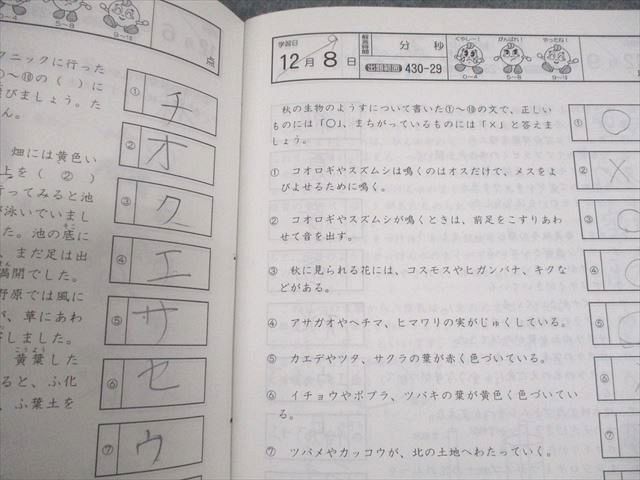 0~4
5~8
9~10
点
クニックに行った
~⑩の( )に
びましょう。た
ん。
畑には黄色い
上を( ② )
行ってみると池
が泳いでいまし
た。池の底に
、まだ足は出
満開でした。
野原では風に
が、草にあわ
ました。
黄葉した
ると、ふ化
、ふ葉土を
① チ
② オ
③ ク
④ エ
⑤ サ
⑥ セ
⑦ ウ
学習日
12月8日
解答時間
分 秒
出題範囲 430-29
くやし~!
がんばれ!
やったね!
0~4
5~8
9~10
秋の生物のようすについて書いた①~⑩の文で、正しい
ものには「○」、まちがっているものには「×」と答えま
しょう。
① コオロギやスズムシは鳴くのはオスだけで、メスをよ
びよせるために鳴く。
② コオロギやスズムシが鳴くときは、前足をこすりあわ
せて音を出す。
③ 秋に見られる花には、コスモスやヒガンバナ、キクな
どがある。
④ アサガオやヘチマ、ヒマワリの実がじゅくしている。
⑤ カエデやツタ、サクラの葉が赤く色づいている。
⑥ イチョウやポプラ、ツバキの葉が黄色く色づいてい
る。
⑦ ツバメやカッコウが、北の土地へわたっていく。
① ○
② ×
③ ○
④
⑤
⑥
⑦